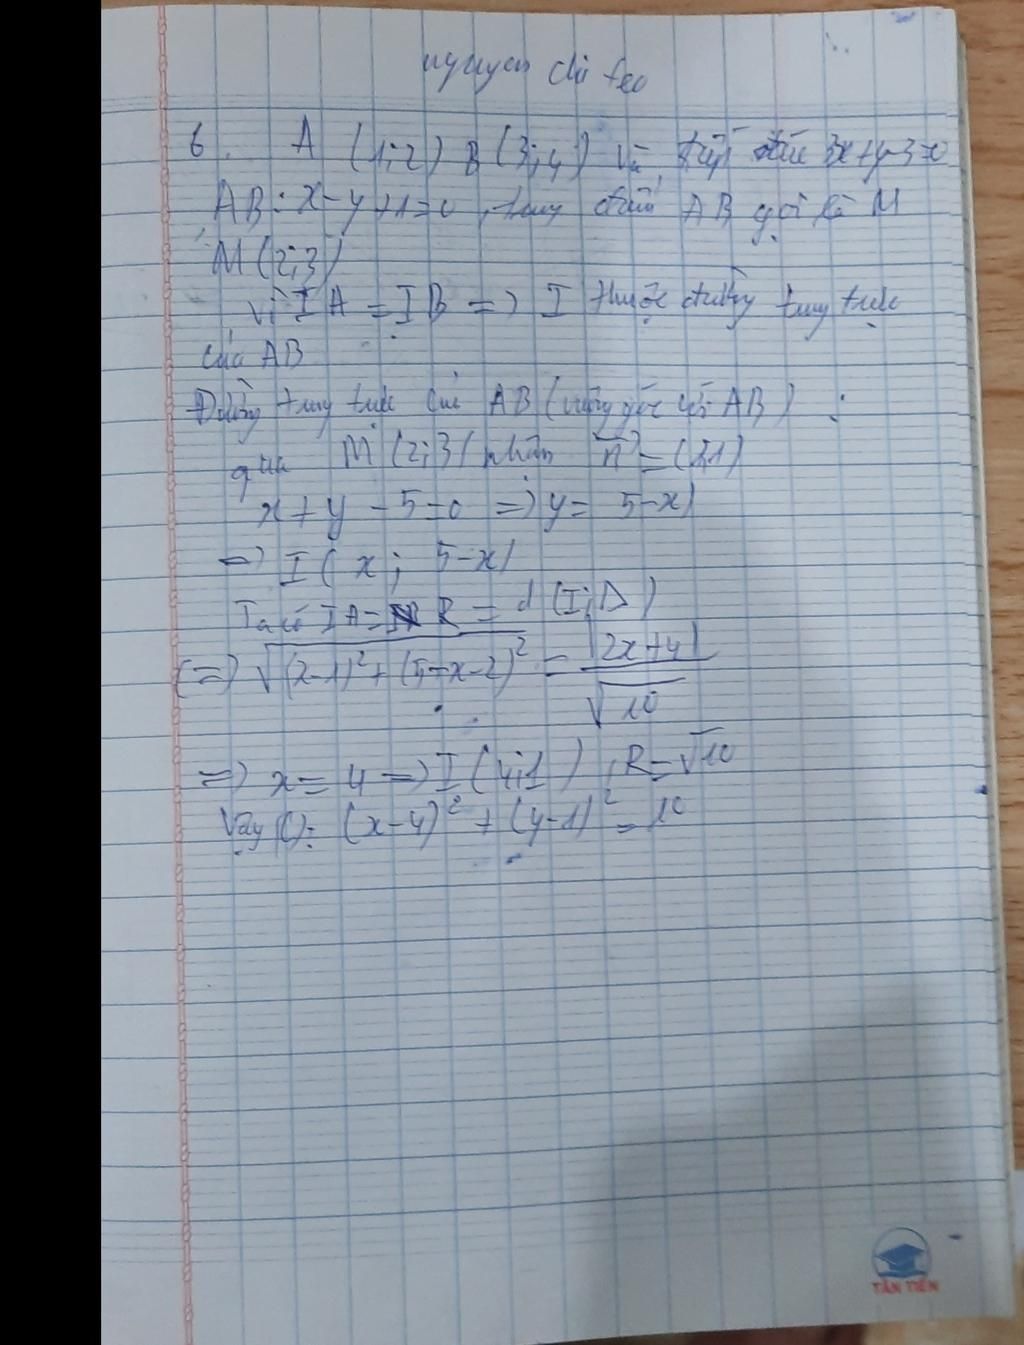 nguyen chi feo
6. A (1;2) B (3;4) và tiếp xúc 3x+y-3=0
AB: x-y+1=0, trung điểm AB gọi là M
M (2;3)
Vì IA = IB => I thuộc đường trung trực
của AB
Đường trung trực của AB (vuông góc với AB) :
qua M (2;3) nhận n = (1;1)
x + y - 5 = 0 => y = 5-x
=> I ( x ; 5-x)
Ta có IA = R = d (I;Δ)
<=> √(x-1)² + (5-x-2)² = |2x+4| / √10
=> x = 4 => I (4;1), R=√10
Vậy (C): (x-4)² + (y-1)² = 10
TÂN TIẾN